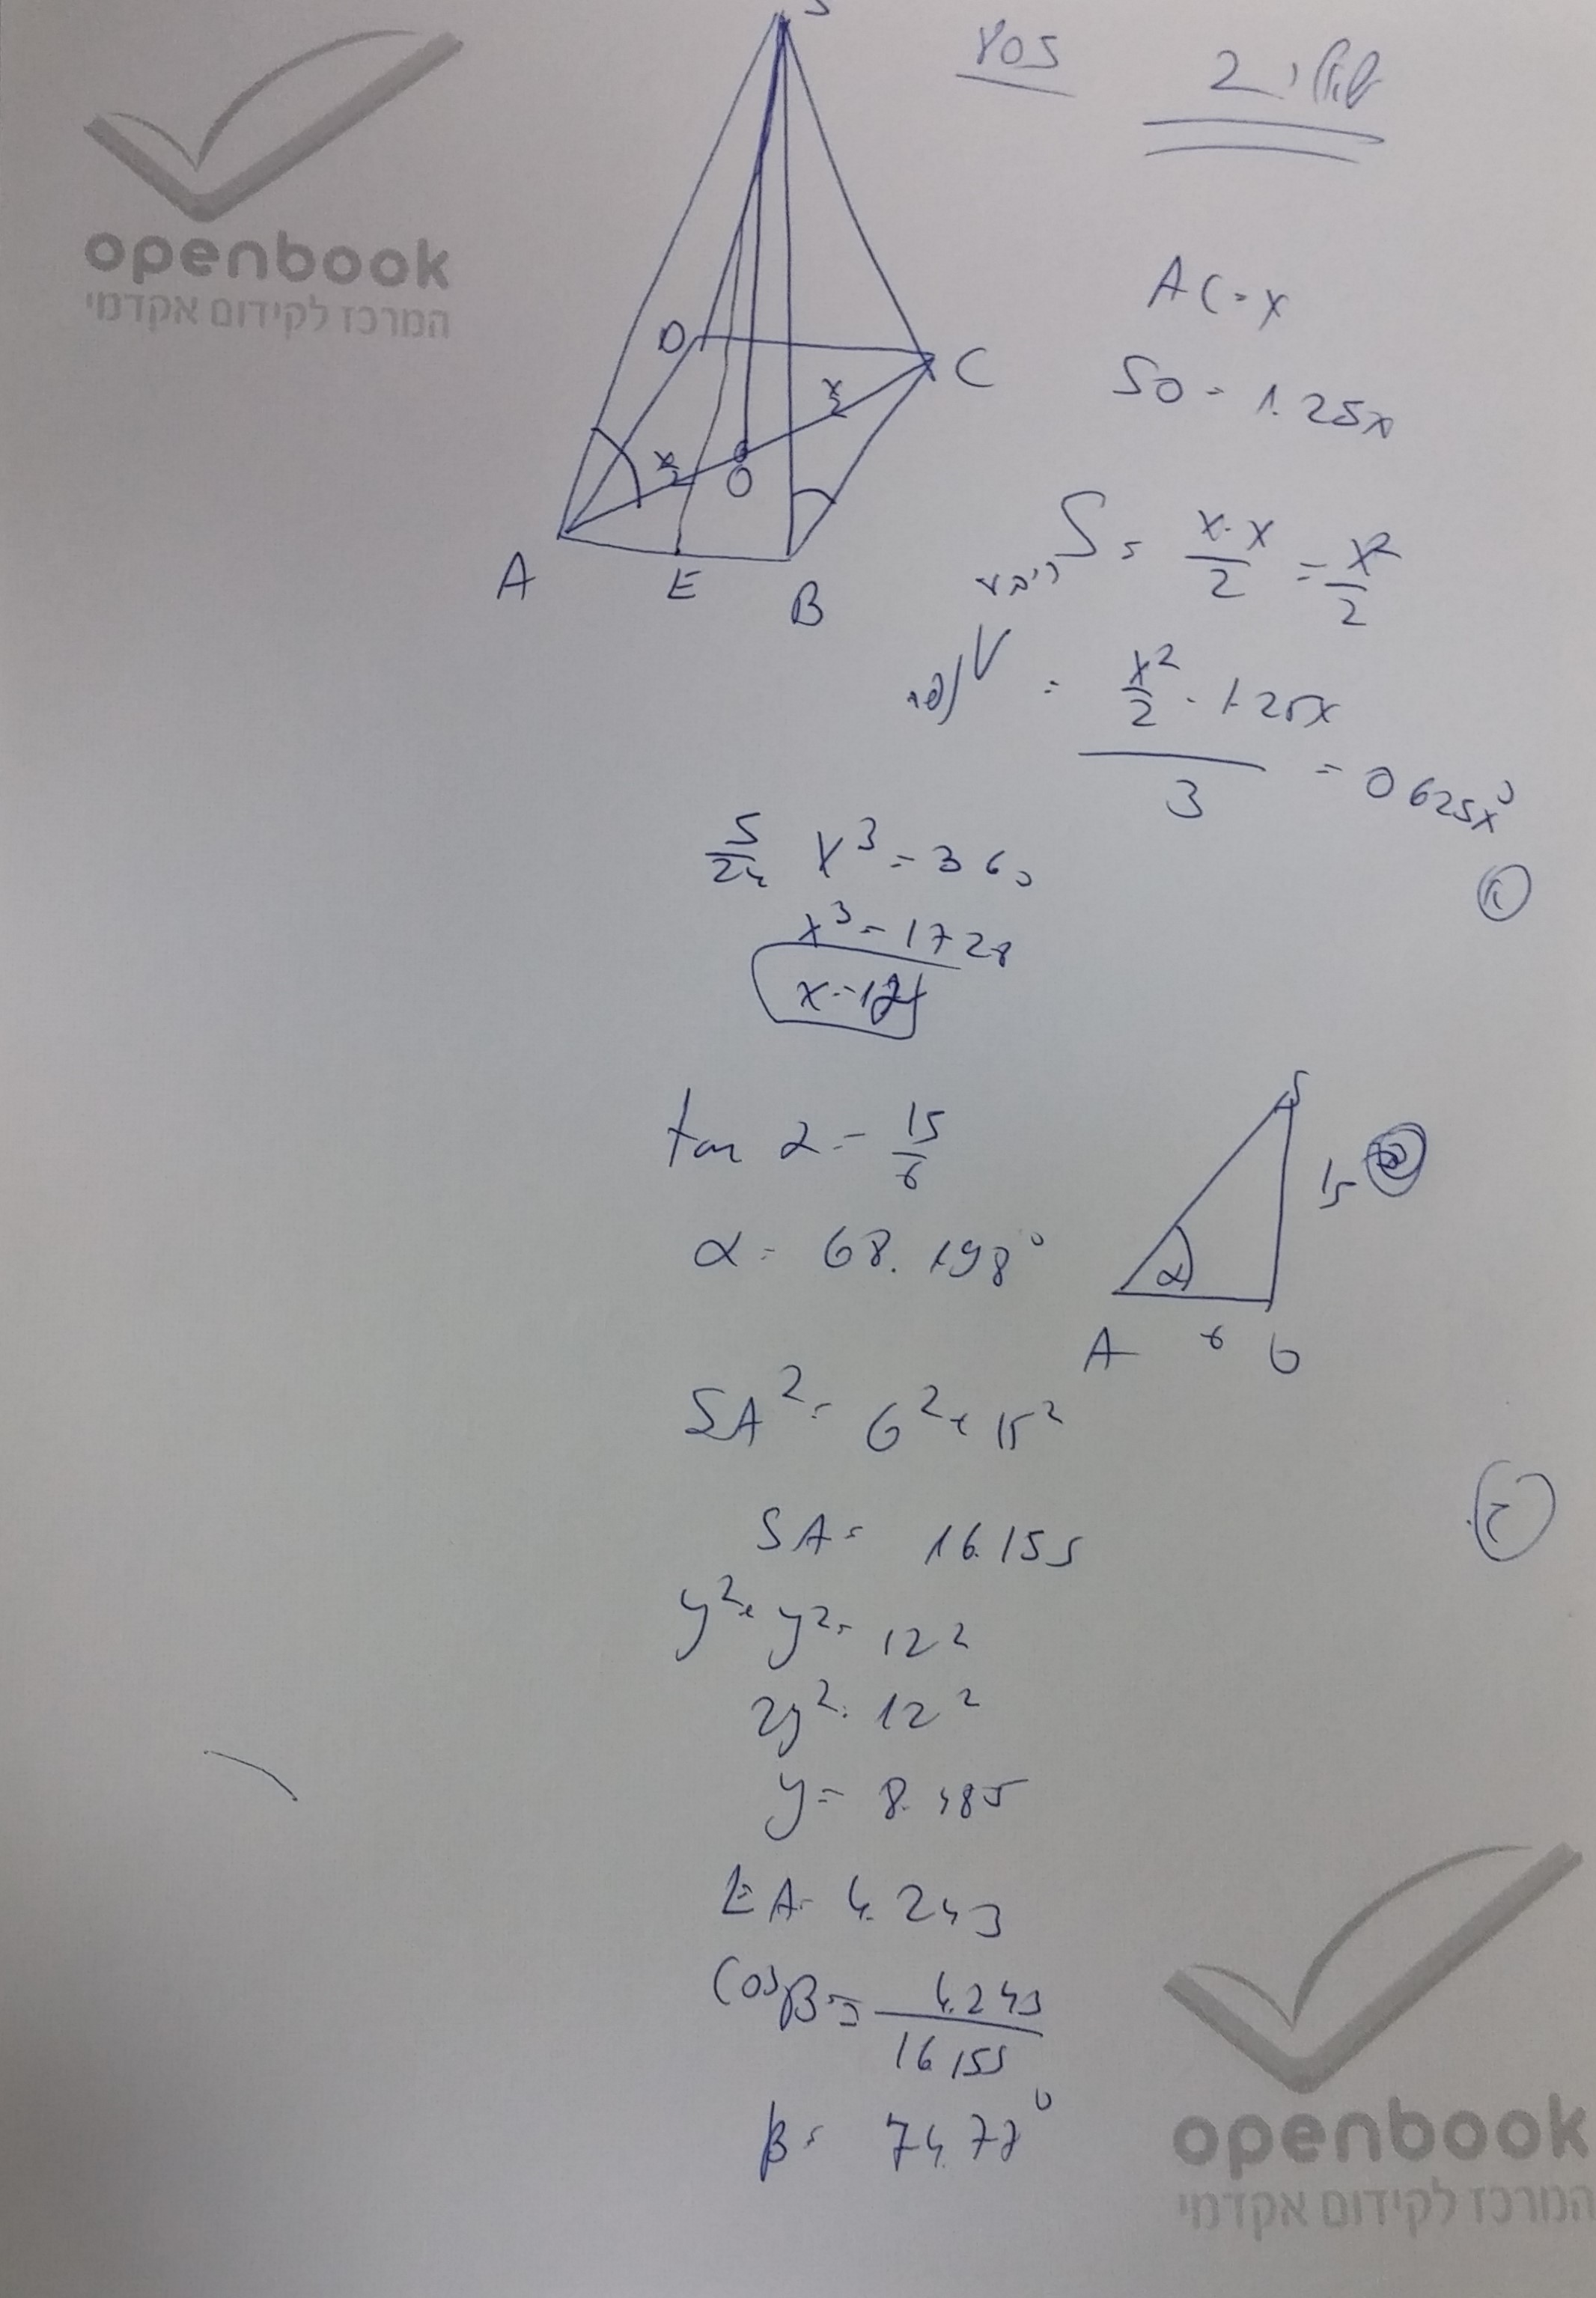 openbook
המרכז לקידום אקדמי
S
D
C
x/2
x/2
O
A
E
B
AC=x
SO=1.25x
S = x·x/2 = x²/2
V = x²/2 · 1.25x / 3 = 0.625x³
5/24 x³ = 360
x³ = 1728
x=12
tan α = 15/6
α = 68.198°
S
15
α
A
6
SA² = 6² + 15²
SA = 16.155
y² + y² = 12²
2y² = 12²
y = 8.485
EA = 4.243
cosβ = 4.243/16.155
β = 74.77°
openbook
המרכז לקידום אקדמי